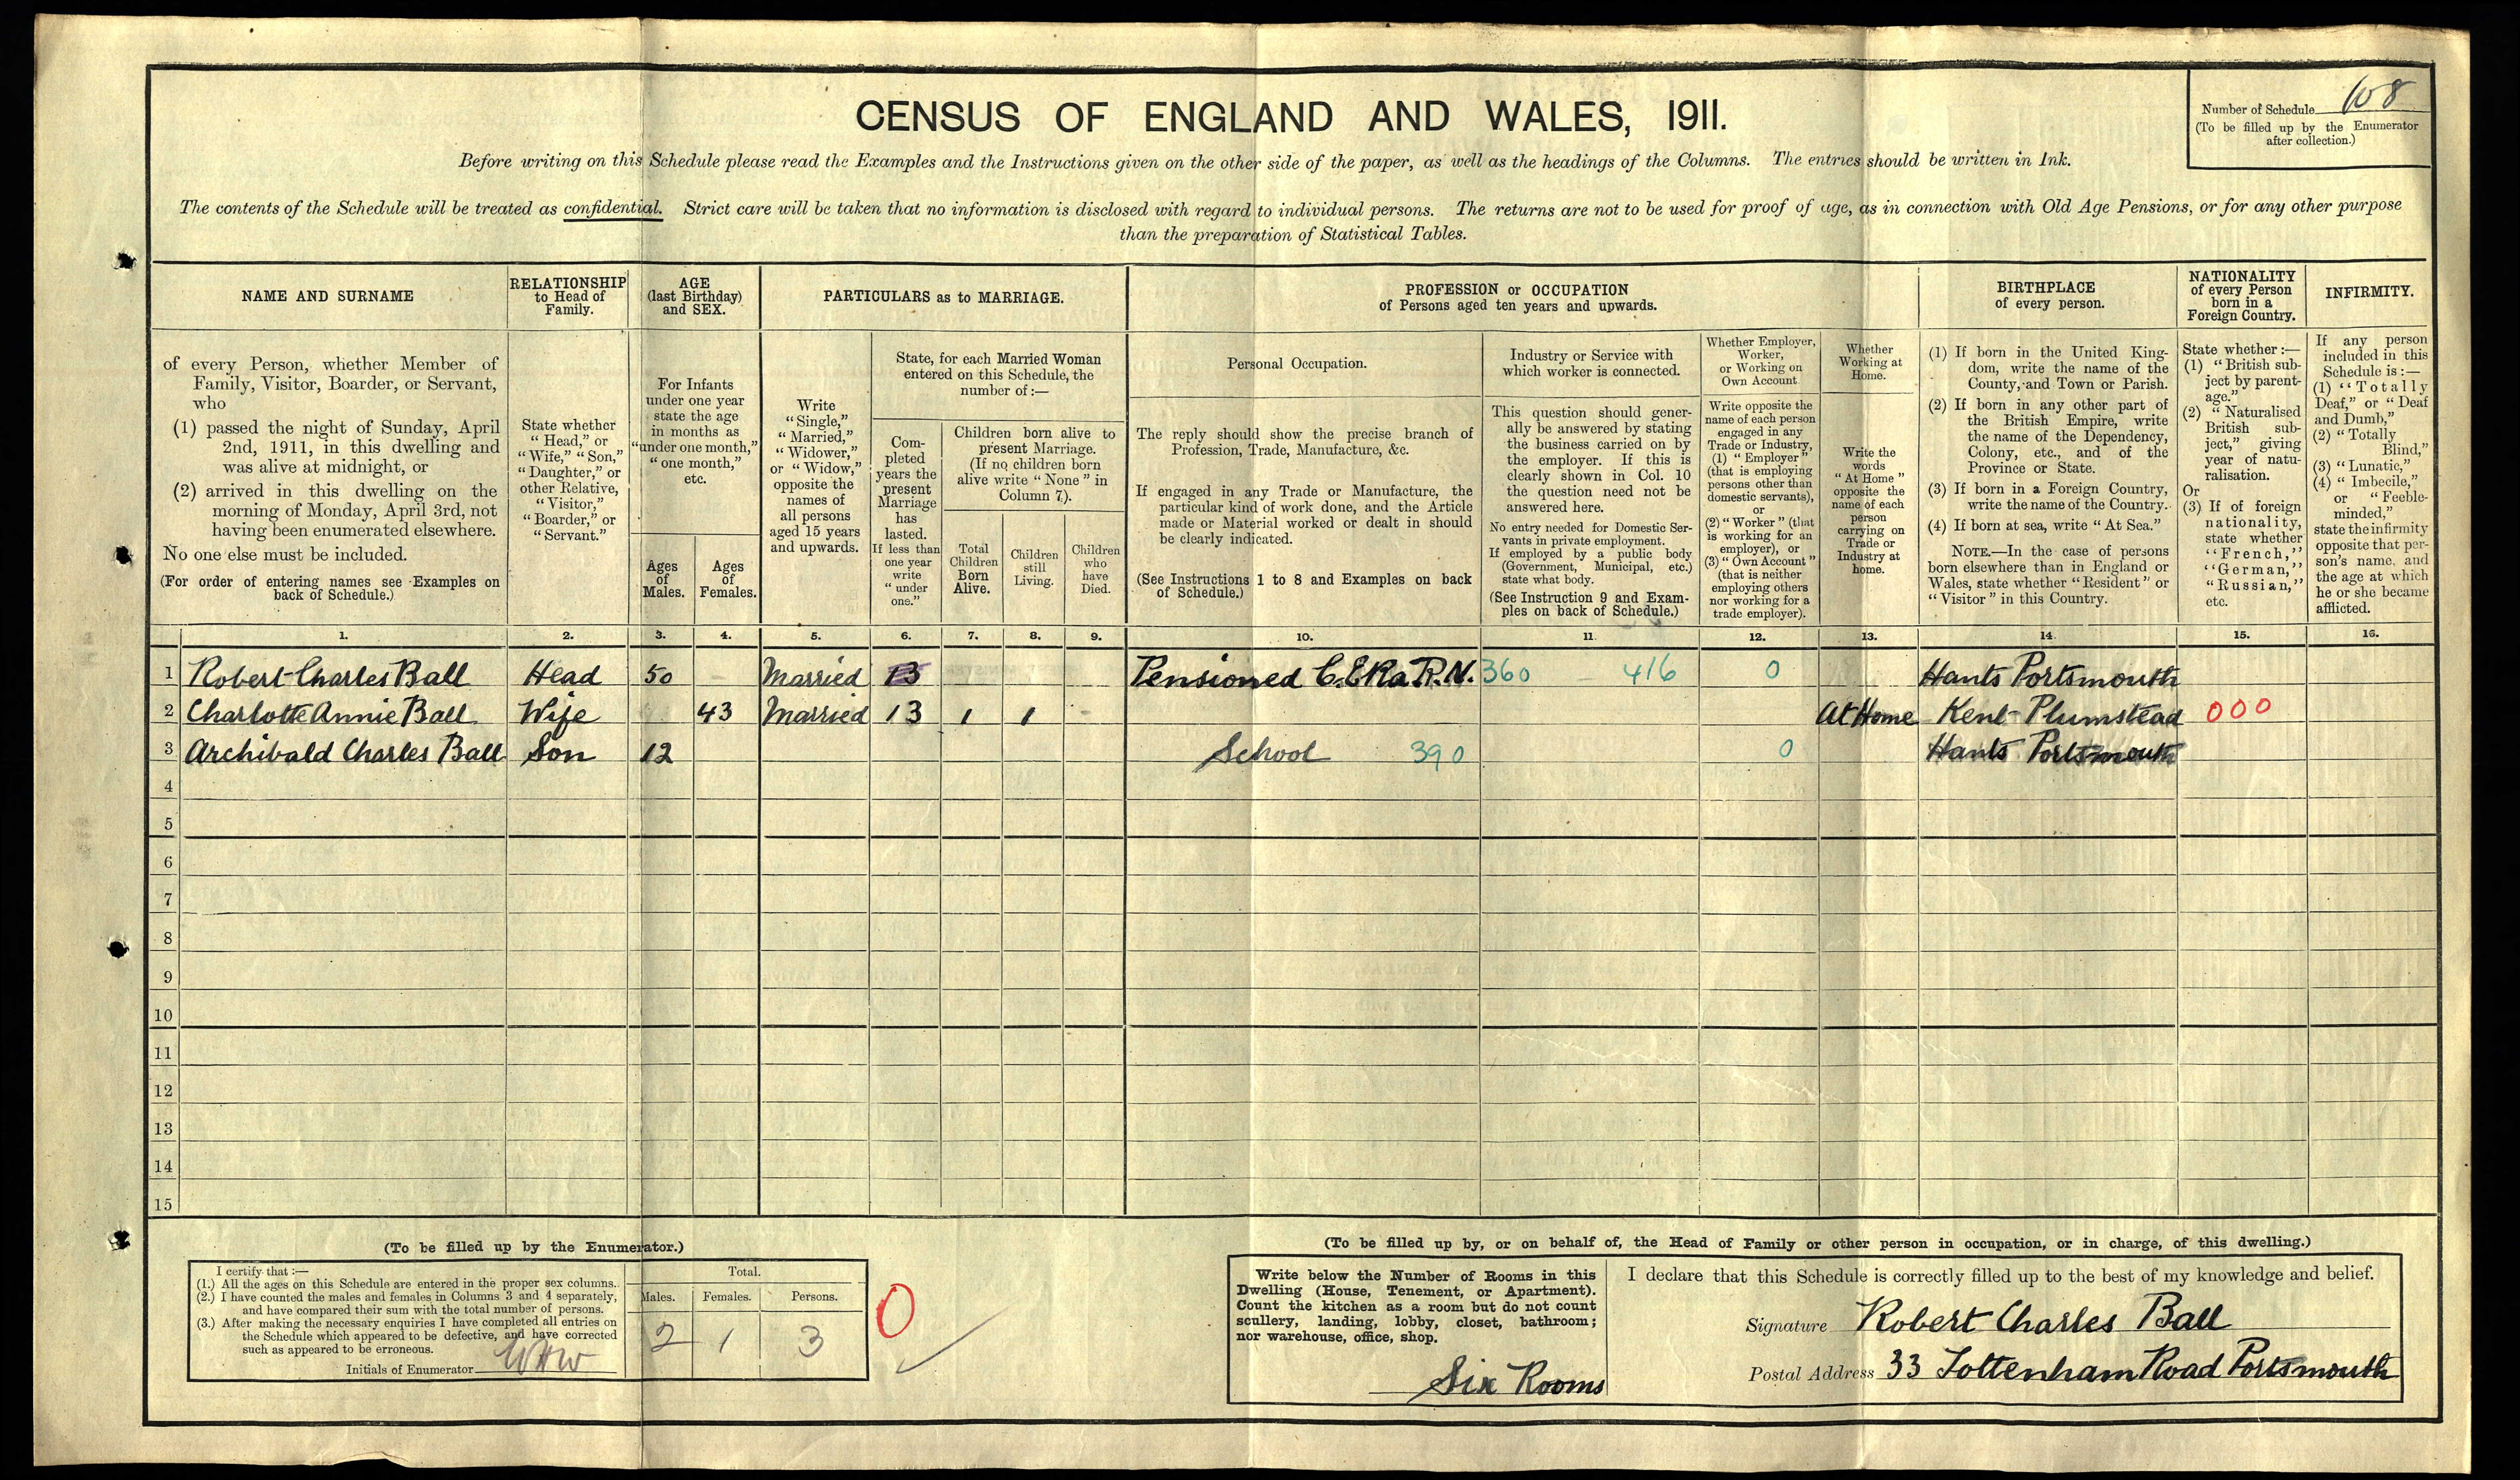 CENSUS OF ENGLAND AND WALES, 1911.
Number of Schedule 108
(To be filled up by the Enumerator
after collection.)
Before writing on this Schedule please read the Examples and the Instructions given on the other side of the paper, as well as the headings of the Columns. The entries should be written in Ink.
The contents of the Schedule will be treated as confidential. Strict care will be taken that no information is disclosed with regard to individual persons. The returns are not to be used for proof of age, as in connection with Old Age Pensions, or for any other purpose
than the preparation of Statistical Tables.
NAME AND SURNAME
of every Person, whether Member of
Family, Visitor, Boarder, or Servant,
who
(1) passed the night of Sunday, April
2nd, 1911, in this dwelling and
was alive at midnight, or
(2) arrived in this dwelling on the
morning of Monday, April 3rd, not
having been enumerated elsewhere.
No one else must be included.
(For order of entering names see Examples on
back of Schedule.)
RELATIONSHIP
to Head of
Family.
State whether
"Head," or
"Wife," "Son,"
"Daughter," or
other Relative,
"Visitor,"
"Boarder," or
"Servant."
AGE
(last Birthday)
and SEX.
For Infants
under one year
state the age
in months as
"under one month,"
"one month,"
etc.
Ages
of
Males.
Ages
of
Females.
PARTICULARS as to MARRIAGE.
Write
"Single,"
"Married,"
"Widower,"
or "Widow,"
opposite the
names of
all persons
aged 15 years
and upwards.
State, for each Married Woman
entered on this Schedule, the
number of :—
Com-
pleted
years the
present
Marriage
has
lasted.
If less than
one year
write
"under
one."
Children born alive to
present Marriage.
(If no children born
alive write "None" in
Column 7).
Total
Children
Born
Alive.
Children
still
Living.
Children
who
have
Died.
PROFESSION or OCCUPATION
of Persons aged ten years and upwards.
Personal Occupation.
The reply should show the precise branch of
Profession, Trade, Manufacture, &c.
If engaged in any Trade or Manufacture, the
particular kind of work done, and the Article
made or Material worked or dealt in should
be clearly indicated.
(See Instructions 1 to 8 and Examples on back
of Schedule.)
Industry or Service with
which worker is connected.
This question should gener-
ally be answered by stating
the business carried on by
the employer. If this is
clearly shown in Col. 10
the question need not be
answered here.
No entry needed for Domestic Ser-
vants in private employment.
If employed by a public body
(Government, Municipal, etc.)
state what body.
(See Instruction 9 and Exam-
ples on back of Schedule.)
Whether Employer,
Worker,
or Working on
Own Account
Write opposite the
name of each person
engaged in any
Trade or Industry,
(1) "Employer"
(that is employing
persons other than
domestic servants),
or
(2) "Worker" (that
is working for an
employer), or
(3) "Own Account"
(that is neither
employing others
nor working for a
trade employer).
Whether
Working at
Home.
Write the
words
"At Home"
opposite the
name of each
person
carrying on
Trade or
Industry at
home.
BIRTHPLACE
of every person.
(1) If born in the United King-
dom, write the name of the
County, and Town or Parish.
(2) If born in any other part of
the British Empire, write
the name of the Dependency,
Colony, etc., and of the
Province or State.
(3) If born in a Foreign Country,
write the name of the Country.
(4) If born at sea, write "At Sea."
NOTE.—In the case of persons
born elsewhere than in England or
Wales, state whether "Resident" or
"Visitor" in this Country.
NATIONALITY
of every Person
born in a
Foreign Country.
State whether :—
(1) "British sub-
ject by parent-
age."
(2) "Naturalised
British sub-
ject," giving
year of natu-
ralisation.
Or
(3) If of foreign
nationality,
state whether
"French,"
"German,"
"Russian,"
etc.
INFIRMITY.
If any person
included in this
Schedule is :—
(1) "Totally
Deaf," or "Deaf
and Dumb,"
(2) "Totally
Blind,"
(3) "Lunatic,"
(4) "Imbecile,"
or "Feeble-
minded,"
state the infirmity
opposite that per-
son's name, and
the age at which
he or she became
afflicted.
1. 2. 3. 4. 5. 6. 7. 8. 9. 10. 11. 12. 13. 14. 15. 16.
1 Robert Charles Ball Head 50 – Married 13 Pensioned C.E.Ra R.N. 360 416 0 Hants Portsmouth
2 Charlotte Annie Ball Wife 43 Married 13 1 1 – At Home Kent Plumstead 000
3 Archibald Charles Ball Son 12 School 390 0 Hants Portsmouth
4
5
6
7
8
9
10
11
12
13
14
15
(To be filled up by the Enumerator.)
I certify that :—
(1.) All the ages on this Schedule are entered in the proper sex columns.
(2.) I have counted the males and females in Columns 3 and 4 separately,
and have compared their sum with the total number of persons.
(3.) After making the necessary enquiries I have completed all entries on
the Schedule which appeared to be defective, and have corrected
such as appeared to be erroneous.
Initials of Enumerator WHW
Total.
Males. Females. Persons.
2 1 3
0
(To be filled up by, or on behalf of, the Head of Family or other person in occupation, or in charge, of this dwelling.)
Write below the Number of Rooms in this
Dwelling (House, Tenement, or Apartment).
Count the kitchen as a room but do not count
scullery, landing, lobby, closet, bathroom;
nor warehouse, office, shop.
Six Rooms
I declare that this Schedule is correctly filled up to the best of my knowledge and belief.
Signature Robert Charles Ball
Postal Address 33 Tottenham Road Portsmouth